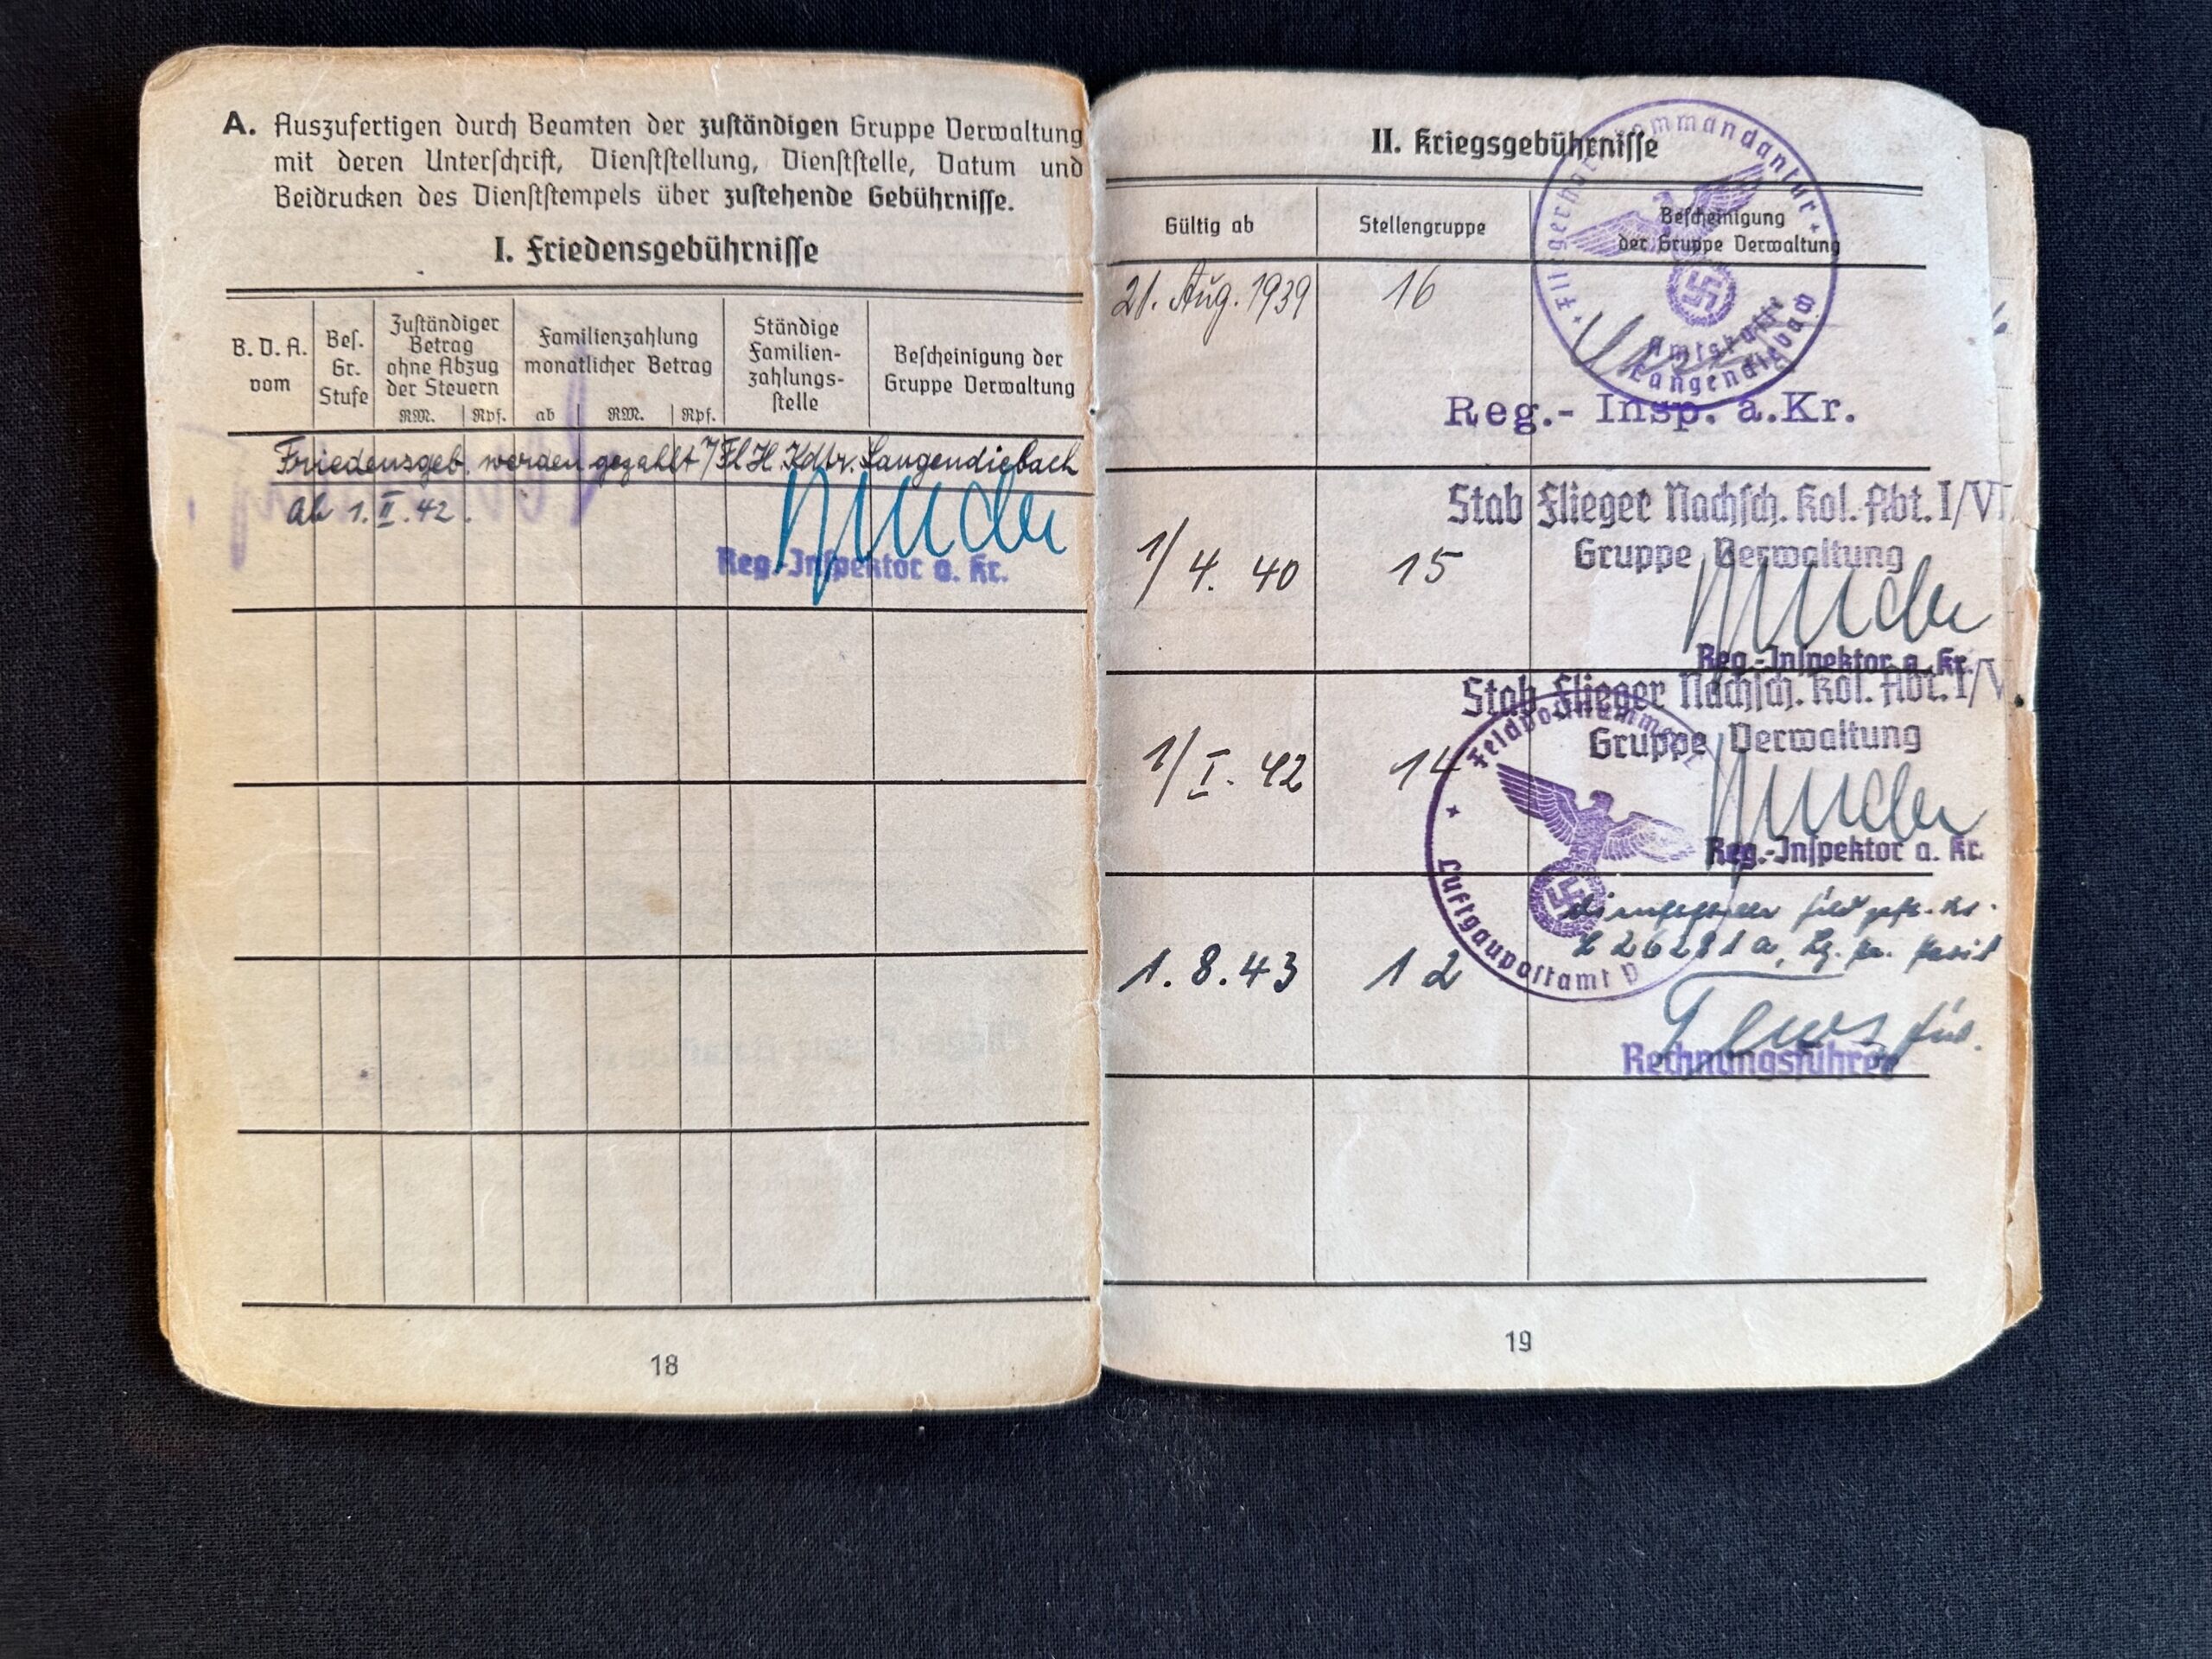 A. Auszufertigen durch Beamten der zuständigen Gruppe Verwaltung
mit deren Unterschrift, Dienststellung, Dienststelle, Datum und
Beidrucken des Dienststempels über zustehende Gebührnisse.
I. Friedensgebührnisse
B. D. A. vom
Bes. Gr. Stufe
Zuständiger Betrag ohne Abzug der Steuern
RM. Rpf.
Familienzahlung monatlicher Betrag
ab RM. Rpf.
Ständige Familien-zahlungs-stelle
Bescheinigung der Gruppe Verwaltung
Friedensgeb. werden gezahlt Fl.H.Kdtr. Langendiebach
ab 1.II.42.
Reg.-Inspektor a. Kr.
18
II. Kriegsgebührnisse
Gültig ab
Stellengruppe
Bescheinigung
der Gruppe Verwaltung
Fliegerhorstkommandantur
Amtskasse
Langendiebach
21. Aug. 1939 16
Reg.- Insp. a.Kr.
Stab Flieger Nachsch. Kol. Abt. I/VI
Gruppe Verwaltung
1/4. 40 15
Reg.-Inspektor a. Kr.
Stab Flieger Nachsch. Kol. Abt. I/V
Gruppe Verwaltung
1/I. 42 14
Reg.-Inspektor a. Kr.
Feldpostnummer
Luftgaupostamt
1. 8. 43 12
Rechnungsführer
19